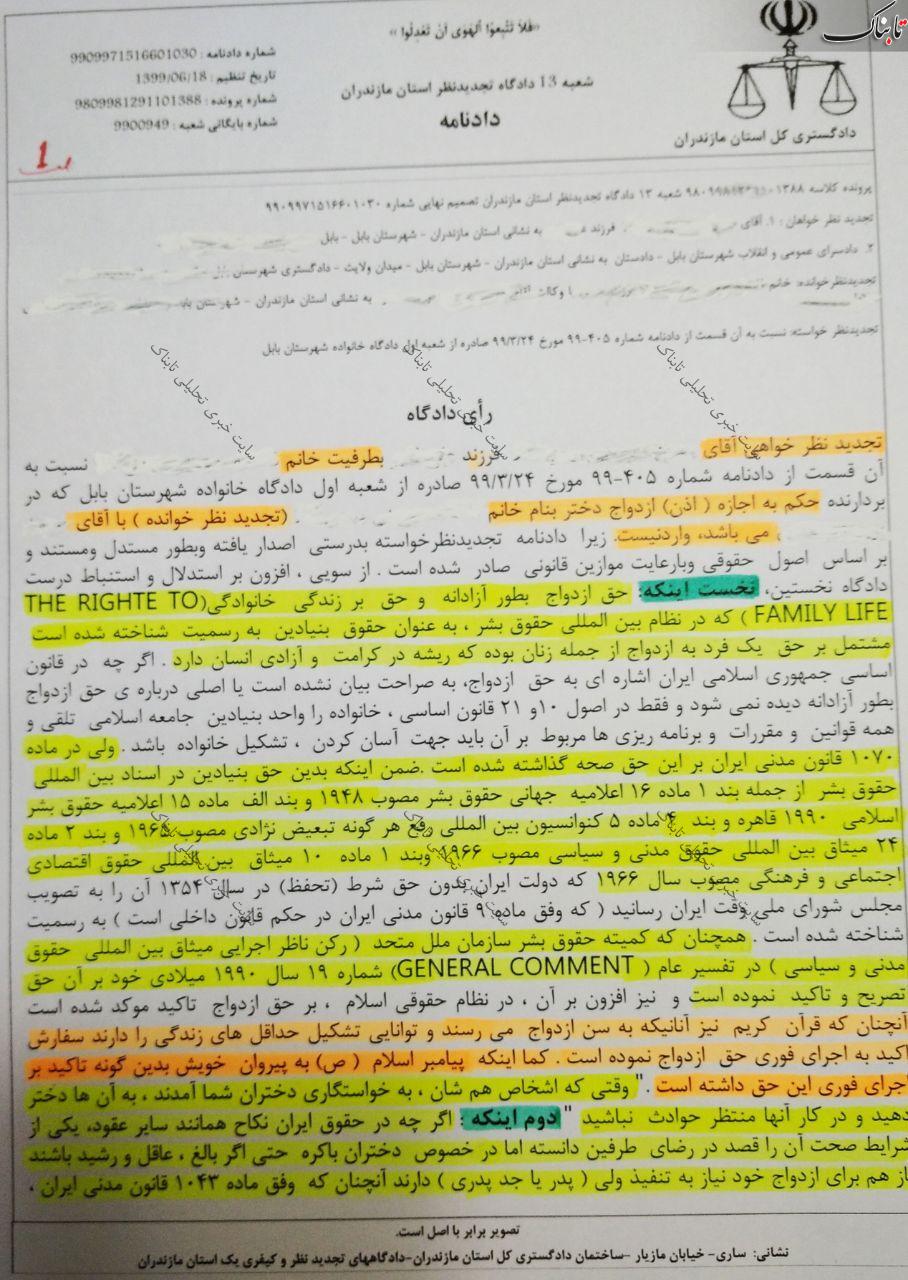 تابناک
«فَلاَ تَتَّبِعوُا أَلهَوَى أَنْ تَعْدِلُوا »
شماره دادنامه : 9909971516601030
تاریخ تنظیم : 1399/06/18
شماره پرونده : 9809981291101388
شماره بایگانی شعبه : 9900949
شعبه 13 دادگاه تجدیدنظر استان مازندران
دادنامه
دادگستری کل استان مازندران
1
پرونده کلاسه شعبه ۱۳ دادگاه تجدیدنظر استان مازندران تصمیم نهایی شماره ۹۹۰۹۹۷۱۵۱۶۶۰۱۰۳۰
تجدید نظر خواهان : ۱. آقای فرزند به نشانی استان مازندران - شهرستان بابل - بابل
۲. دادسرای عمومی و انقلاب شهرستان بابل - دادستان به نشانی استان مازندران - شهرستان بابل - میدان ولایت - دادگستری شهرستان بابل
تجدیدنظرخوانده: خانم با وکالت به نشانی استان مازندران - شهرستان
تجدیدنظر خواسته: نسبت به آن قسمت از دادنامه شماره ۴۰۵-۹۹ مورخ ۹۹/۳/۲۴ صادره از شعبه اول دادگاه خانواده شهرستان بابل
سایت خبری تحلیلی تابناک
سایت خبری تحلیلی تابناک
سایت خبری تحلیلی تابناک
رأی دادگاه
تجدید نظر خواهی آقای فرزند بطرفیت خانم نسبت به
آن قسمت از دادنامه شماره ۴۰۵-۹۹ مورخ ۹۹/۳/۲۴ صادره از شعبه اول دادگاه خانواده شهرستان بابل که در
بردارنده حکم به اجازه ( اذن) ازدواج دختر بنام خانم (تجدید نظر خوانده ) با آقای
می باشد، واردنیست. زیرا دادنامه تجدیدنظرخواسته بدرستی اصدار یافته وبطور مستدل ومستند و
بر اساس اصول حقوقی وبارعایت موازین قانونی صادر شده است . از سویی ، افزون بر استدلال و استنباط درست
دادگاه نخستین، نخست اینکه: حق ازدواج بطور آزادانه و حق بر زندگی خانوادگی(THE RIGHTE TO
FAMILY LIFE ) که در نظام بین المللی حقوق بشر ، به عنوان حقوق بنیادین به رسمیت شناخته شده است
مشتمل بر حق یک فرد به ازدواج از جمله زنان بوده که ریشه در کرامت و آزادی انسان دارد . اگر چه در قانون
اساسی جمهوری اسلامی ایران اشاره ای به حق ازدواج، به صراحت بیان نشده است یا اصلی درباره ی حق ازدواج
بطور آزادانه دیده نمی شود و فقط در اصول ۱۰و ۲۱ قانون اساسی ، خانواده را واحد بنیادین جامعه اسلامی تلقی و
همه قوانین و مقررات و برنامه ریزی ها مربوط بر آن باید جهت آسان کردن ، تشکیل خانواده باشد . ولی در ماده
۱۰۷۰ قانون مدنی ایران بر این حق صحه گذاشته شده است .ضمن اینکه بدین حق بنیادین در اسناد بین المللی
حقوق بشر از جمله بند ۱ ماده ۱۶ اعلامیه جهانی حقوق بشر مصوب ۱۹۴۸ و بند الف ماده ۱۵ اعلامیه حقوق بشر
اسلامی ۱۹۹۰ قاهره و بند ۴ ماده ۵ کنوانسیون بین المللی رفع هر گونه تبعیض نژادی مصوب ۱۹۶۵ و بند ۲ ماده
۲۴ میثاق بین المللی حقوق مدنی و سیاسی مصوب ۱۹۶۶ وبند ۱ ماده ۱۰ میثاق بین المللی حقوق اقتصادی
اجتماعی و فرهنگی مصوب سال ۱۹۶۶ که دولت ایران بدون حق شرط (تحفظ) در سال ۱۳۵۴ آن را به تصویب
مجلس شورای ملی وقت ایران رسانید ( که وفق ماده ۹ قانون مدنی ایران در حکم قانون داخلی است ) به رسمیت
شناخته شده است . همچنان که کمیته حقوق بشر سازمان ملل متحد ( رکن ناظر اجرایی میثاق بین المللی حقوق
مدنی و سیاسی ) در تفسیر عام ( GENERAL COMMENT) شماره ۱۹ سال ۱۹۹۰ میلادی خود بر آن حق
تصریح و تاکید نموده است و نیز افزون بر آن ، در نظام حقوقی اسلام ، بر حق ازدواج تاکید موکد شده است
آنچنان که قرآن کریم نیز آنانیکه به سن ازدواج می رسند و توانایی تشکیل حداقل های زندگی را دارند سفارش
اکید به اجرای فوری حق ازدواج نموده است . کما اینکه پیامبر اسلام ( ص) به پیروان خویش بدین گونه تاکید بر
اجرای فوری این حق داشته است ." وقتی که اشخاص هم شان ، به خواستگاری دختران شما آمدند ، به آن ها دختر
دهید و در کار آنها منتظر حوادث نباشید " دوم اینکه : اگر چه در حقوق ایران نکاح همانند سایر عقود، یکی از
شرایط صحت آن را قصد در رضای طرفین دانسته اما در خصوص دختران باکره حتی اگر بالغ ، عاقل و رشید باشند
باز هم برای ازدواج خود نیاز به تنفیذ ولی ( پدر یا جد پدری ) دارند آنچنان که وفق ماده ۱۰۴۳ قانون مدنی ایران ،
تصویر برابر با اصل است.
نشانی: ساری- خیابان مازیار -ساختمان دادگستری کل استان مازندران-دادگاههای تجدید نظر و کیفری یک استان مازندران